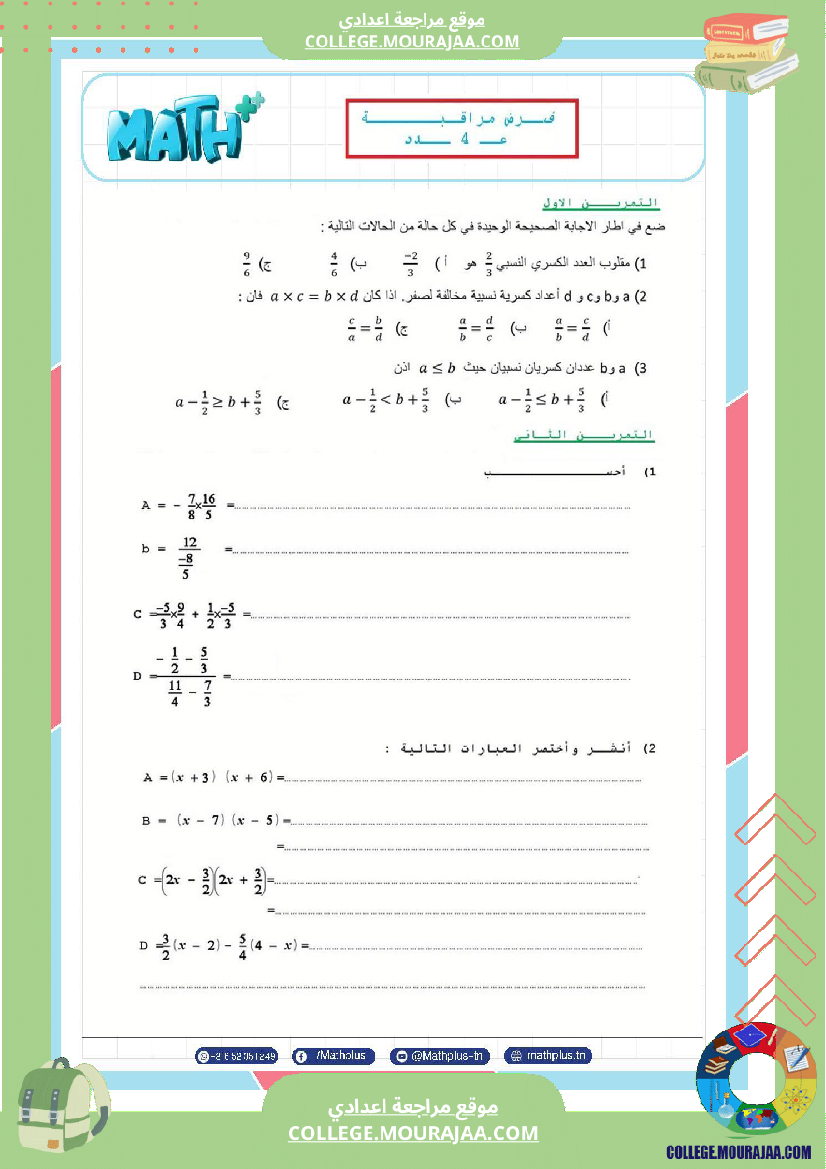 موقع مراجعة اعدادي
COLLEGE.MOURAJAA.COM
MATH
فـــرض مراقبـــــــــــة
عــ 4 ــــدد
التمريــــــن الاول
ضع في اطار الاجابة الصحيحة الوحيدة في كل حالة من الحالات التالية :
1) مقلوب العدد الكسري النسبي 2/3 هو أ ) −2/3 ب) 4/6 ج) 9/6
2) a وb وc و d أعداد كسرية نسبية مخالفة لصفر. اذا كان a × c = b × d فان :
أ) a/b = c/d ب) a/b = d/c ج) c/a = b/d
3) a وb عددان كسريان نسبيان حيث a ≤ b اذن
أ) a − 1/2 ≤ b + 5/3 ب) a − 1/2 < b + 5/3 ج) a − 1/2 ≥ b + 5/3
التمريــــــن الثـــاني
1) أحســــــــــــــــــــب
A = - 7/8 x 16/5 =
b = 12/(-8/5) =
C = -5/3 x 9/4 + 1/2 x -5/3 =
D = (- 1/2 - 5/3)/(11/4 - 7/3) =
2) أنشـــر وأختصر العبارات التالية :
A = (x + 3) (x + 6) =
B = (x - 7) (x - 5) =
=
C = (2x - 3/2)(2x + 3/2) =
=
D = 3/2 (x - 2) - 5/4 (4 - x) =
/Mathplus
@Mathplus-tn
mathplus.tn
موقع مراجعة اعدادي
COLLEGE.MOURAJAA.COM
COLLEGE.MOURAJAA.COM